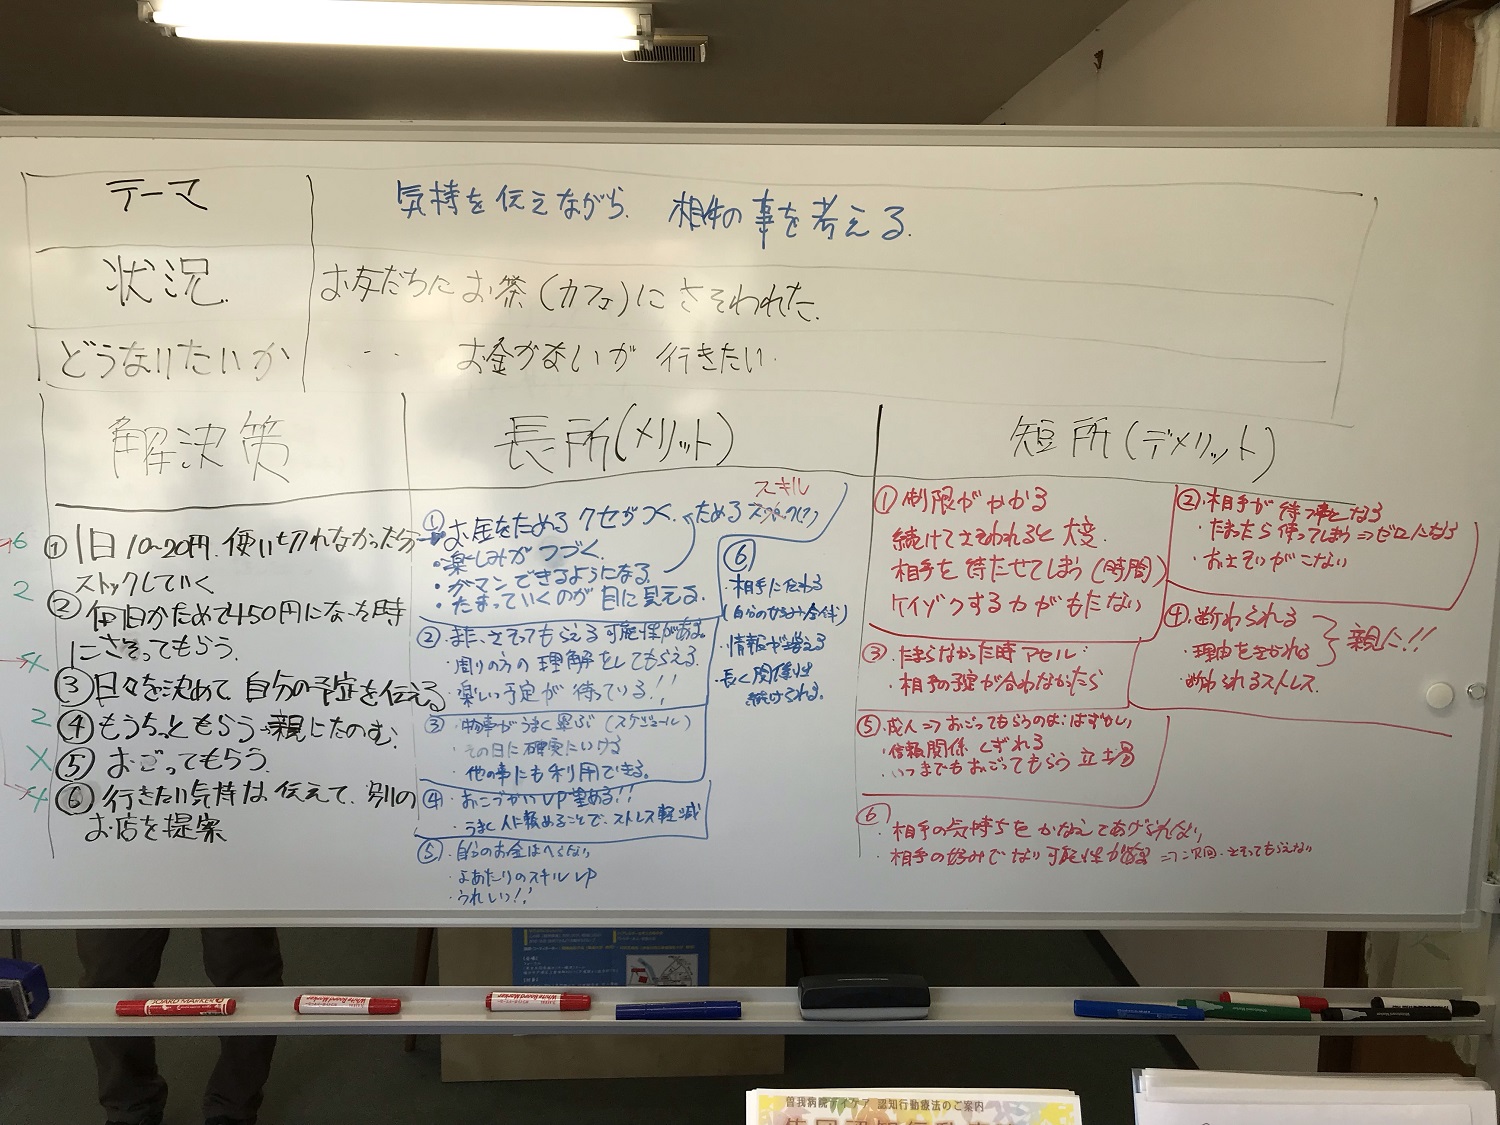 テーマ
気持を伝えながら、相手の事を考える。
状況
お友だちにお茶(カフェ)にさそわれた。
どうなりたいか
お金がないが 行きたい
解決策
長所(メリット)
短所(デメリット)
6
① 1日10〜20円、使い切れなかった分
ストックしていく
2
② 毎日ためて450円になった時
にさそってもらう。
4
③ 日々を決めて 自分の予定を伝える
2
④ もうちょっともらう 親にたのむ。
X
⑤ おごってもらう。
4
⑥ 行きたい気持は 伝えて、別の
お店を提案
スキル
① お金をためるクセがつく。
ためる
・楽しみがつづく。
・ガマンできるようになる
・たまっていくのが目に見える。
② また、さそってもらえる可能性がある。
・周りの方の理解をしてもらえる。
・楽しい予定が待っている!!
③ ・物事がうまく運ぶ(スケジュール)
・その日に確実にいける
・他の事にも利用できる。
④ ・おこづかいUP望める!!
・うまく人に頼めることで、ストレス軽減
⑤ ・自分のお金はへらない
・よあたりのスキルUP
・うれしい!!
⑥
・相手に伝わる
・情報が増える
・長く関係性
続けられる。
① 制限がかかる
続けてさそわれると大変
相手を待たせてしまう(時間)
ケイゾクする力がもたない
② ・相手が待つ事となる
・たまったら使ってしまう⇒ゼロになる
・おさそいがこない
③ ・たまらなかった時アセル
・相手の予定が合わなかったら
④ ・断わられる
・理由をきかれる
・断わられるストレス
親に!!
⑤ ・成人⇒おごってもらうのは はずかしい
・信頼関係 くずれる
・いつまでもおごってもらう立場
⑥
・相手の気持ちをかなえてあげられない
・相手の好みでない可能性が ⇒次回・さそってもらえない
BOARD MARKER
White Board Marker
White Board Marker
曽我病院デイケア 認知行動療法のご案内
集団認知行動療法